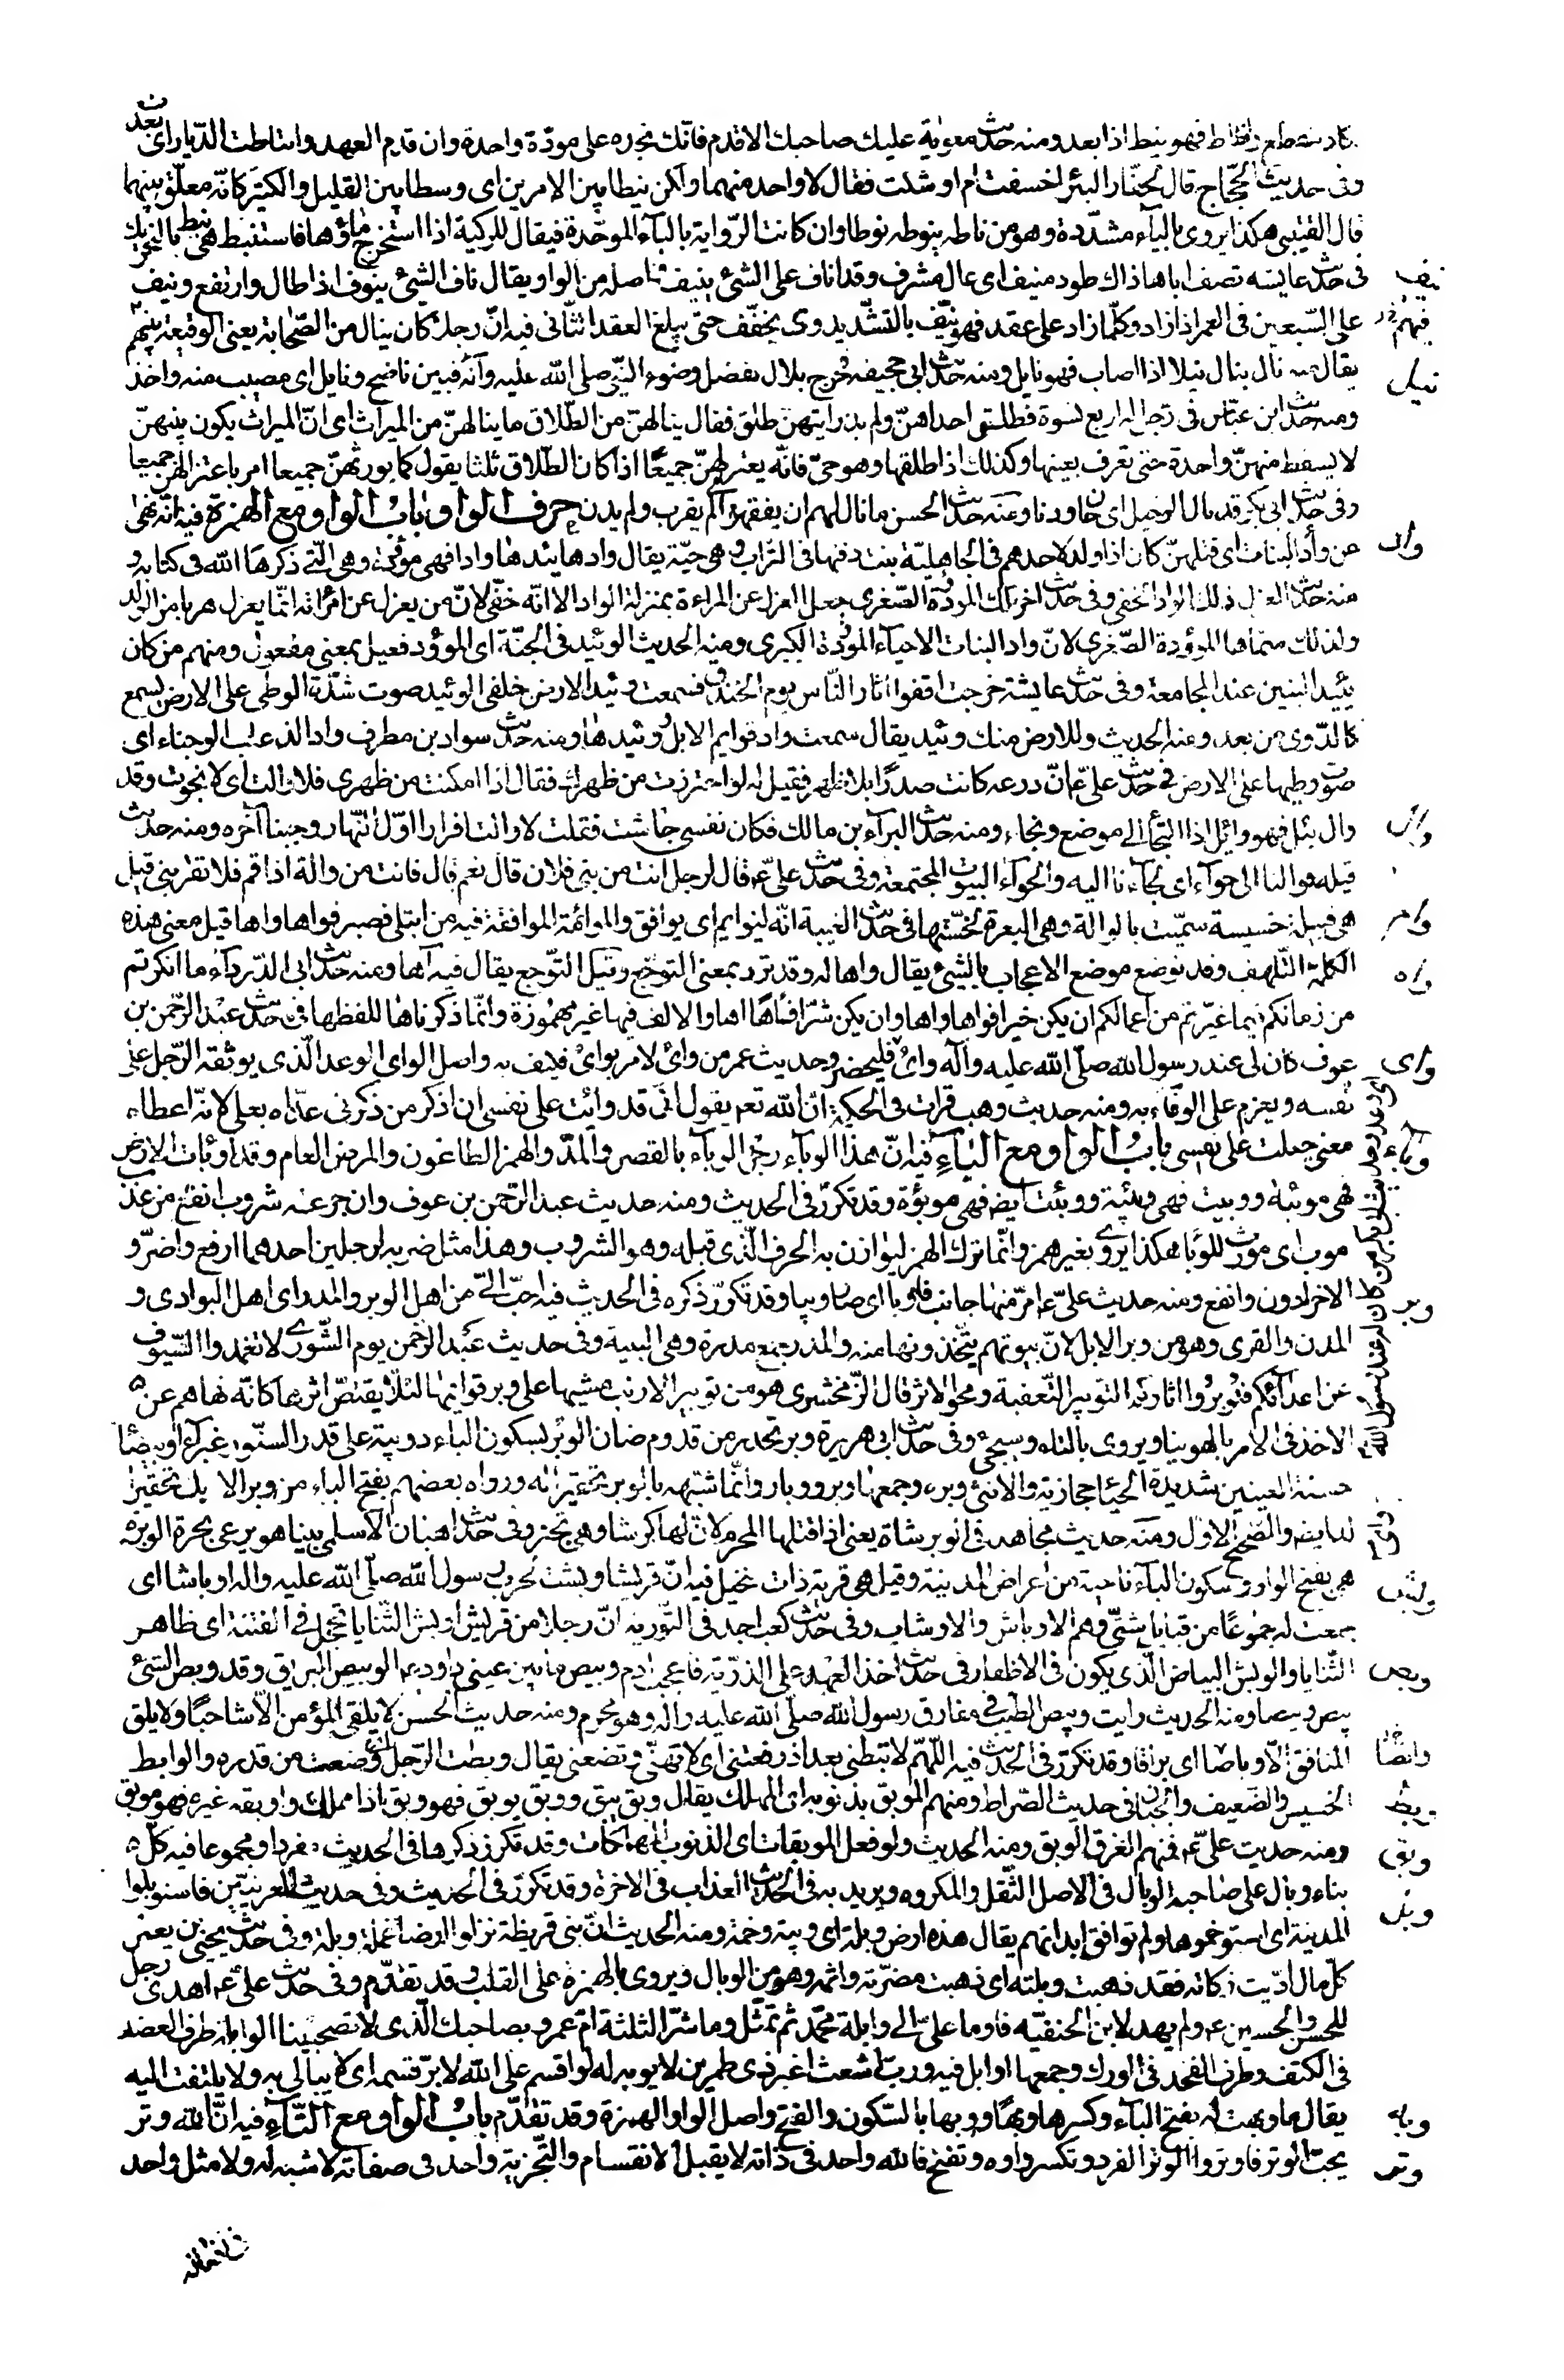 فهو ينط اذا بعد ومنه حديث معوية عليك صاحبك الاقدم فانّك تجده على مودّة واحدة وان قدم العهد وانتاطت الدّيار اى بعدت
وفى حديث الحجّاج قال لحفّار البئر اخسفت ام اوشلت فقال لا واحد منهما ولكن نيطا بين الامرين اى وسطا بين القليل والكثير كانّه معلّق بينهما
قال القتيبى هكذا يروى بالياء مشدّدة وهو من ناطه ينوطه نوطا وان كانت الرّواية بالباء الموحّدة فيقال للركية اذا استخرج ماؤها فاستنبط هى نبط بالتحريك
نيف فى حديث عايشه تصف اباها ذاك طود منيف اى عال مشرف وقد اناف على الشئ ينيف اصله من الواو يقال ناف الشئ ينوف اذا طال وارتفع ونيف
على السّبعين فى العمر اذا زاد وكلّما زاد على عقد فهو نيّف بالتشديد وى يخفّف حتّى يبلغ العقد الثّانى فيه انّ رجلا كان ينال من الصّحابة يعنى الوقيعة فيهم
نيل يقال منه نال ينال نيلا اذا اصاب فهو نايل ومنه حديث ابى جحيفه فخرج بلال بفضل وضوء النبّى صلى الله عليه وآله فبين ناضح ونايل اى مصيب منه واخذ
ومنه حديث ابن عبّاس فى رجل له اربع نسوة فطلّق احداهنّ ولم يدر ايتهنّ طلق فقال ينالهنّ من الطّلاق ما ينالهنّ من الميراث اى انّ الميراث يكون بينهنّ
لا يسقط منهنّ واحدة حتى تعرف بعينها وكذلك اذا طلقها وهو حىّ فانّه يعتزلهنّ جميعا اذا كان الطلاق ثلثا يقول كما يورثهنّ جميعا امر باعتزالهنّ جميعا
وفى حديث ابى بكر قد نال الرحيل اى حان ودنا ومنه حديث الحسن ما نال لهم ان يفقهوا اى لم يقرب ولم يدن حرف الواو باب الواو مع الهمزة فيه انّه نهى
واد عن وأد البنات اى قتلهنّ كان اذا ولد لاحدهم فى الجاهليّة بنت دفنها فى التّراب وهى حيّة يقال وادها يئدها وادا فهى موؤدة وهى الّتى ذكرها الله فى كتابه و
منه حديث العزل ذلك الواد الخفى وفى حديث اخر تلك الموؤدة الصّغرى جعل العزل عن المراءة بمنزلة الواد الا انّه خفّى لانّ من يعزل عن امراته انّما يعزل هربا من الولد
ولذلك سمّاها الموؤدة الصّغرى لانّ واد البنات الاحياء الموؤدة الكبرى ومنه الحديث الوئيد فى الجنّة اى الموؤد فعيل بمعنى مفعول ومنهم من كان
يئيد البنين عند المجامعة وفى حديث عايشة خرجت اقفوا اثار النّاس يوم الخندق فسمعت وئيد الارض خلفى الوئيد صوت شدّة الوطى على الارض يسمع
كالدّوى من بعد ومنه الحديث وللارض منك وئيد يقال سمعت واد قوايم الابل ووئيدها ومنه حديث سواد بن مطرف واد الذعلب الوجناء اى
صوت وطيها على الارض فى حديث علىّ عم انّ درعه كانت صدرًا بلا ظهر فقيل له لو احترزت من ظهرك فقال اذا امكنت من ظهرى فلا والت اى لا نجوت وقد
وال وال يئل فهو وائل اذا التجأ الى موضع ونجاء ومنه حديث البرآء بن مالك فكان نفسى جاشت فقلت لا والت افرارا اوّل النّهار وجبنا آخره ومنه حديث
قيله فوالنا الى حوآء اى لجآءنا اليه والحوآء البيوت المجتمعة وفى حديث علىّ عم قال لرجل انت من بنى فلان قال نعم قال فانت من والة اذًا قم فلا تقربنى قيل
وام هى قبيلة خسيسة سمّيت بالوالة وهى البعرة لخسّتها فى حديث الغيبة انّه ليوايم اى يوافق والموائمة الموافقة فيه من ابتلى فصبر فواها واها قيل معنى هذه
واه الكلمة التّلهف وقد توضع موضع الاعجاب بالشئ يقال واها له وقد ترد بمعنى التوجّع وقيل التّوجع يقال فيه آها ومنه حديث ابى الدّرداء ما انكرتم
من زمانكم فيما غيّرتم من اعمالكم ان يكن خيرا فواها واها وان يكن شرّا فآها آها والالف فيها غير مهموزة وانّما ذكرناها للفظها فى حديث عبد الرّحمن بن
واى عوف كان لى عند رسول الله صلّى الله عليه وآله وائ فليحضر وحديث عمر من وائ لامرء بوائ فليف به واصل الواى الوعد الّذى يوثقه الرّجل على
نفسه ويعزم على الوفاء به ومنه حديث وهب قرات فى الحكمة انّ الله تعم يقول انّى قد وائت على نفسى ان اذكر من ذكرنى عدّاه بعلى لانّه اعطاء
وباء معنى جعلت على نفسى باب الواو مع الباء فيه انّ هذا الوباء رجز الوباء بالقصر والمدّ والهمز الطاعون والمرض العام وقد اوبأت الارض
فهى موبئة ووبيت فهى وبيئة ووبئت ايضا فهى موبؤة وقد تكرّر فى الحديث ومنه حديث عبد الرّحمن بن عوف وان جرعنه شروب انفع من عذب
موب اى مورث للوبا هكذا يروى بغير همز وانّما ترك الهمز ليوازن به الحرف الّذى قبله وهو الشروب وهذا مثل ضربه لرجلين احدهما ارفع واضرّ و
الاخر ادون وانفع ومنه حديث علىّ عم امرّ منها جانب فاوبا اى صار وبيا وقد تكرّر ذكره فى الحديث فيه احبّ الىّ من اهل الوبر والمدر اى اهل البوادى و
وبر المدن والقرى وهو من وبر الابل لانّ بيوتهم يتّخذونها منه والمدر جمع مدرة وهى البنية وفى حديث عبد الرّحمن يوم الشّورى لا تغمدوا السّيوف
عن اعدائكم فتوبروا اثاركم التوبير التّعفية ومحو الاثر قال الزّمخشرى هو من توبير الارنب مشيها على وبر قوائمها لئلا يقتصّ اثرها كانّه نهاهم عن
الاخذ فى الامر بالهوينا ويروى بالتاء وسيجئ وفى حديث ابى هريرة وبر تحدّر من قدوم ضان الوبر بسكون الباء دويبة على قدر السنّور غبراء او بيضاء
حسنة العينين شديدة الحياء حجازية والانثى وبرة وجمعها وبر ووبار وانّما شبّهه بالوبر تحقيرا له ورواه بعضهم بفتح الباء من وبر الابل تحقيرا
له ايضا والصّحيح الاوّل ومنه حديث مجاهد فى الوبر شاة يعنى اذا قتلها المحرم لانّ لها كرشا وهى تجتر وفى حديث اهبان الاسلمى بينا هو يرعى بحرة الوبرة
وبش هى بفتح الواو وسكون الباء ناحية من اعراض المدينة وقيل هى قرية ذات نخيل فيه انّ قريشا وبشت لحرب رسول الله صلّى الله عليه واله اوباشا اى
جمعت له جموعًا من قبايل شتّى وهم الاوباش والاوشاب وفى حديث كعب اجد فى التّورية انّ رجلا من قريش اوبش الثّنايا يحجل فى الفتنة اى ظاهر
وبص الثّنايا والوبش البياض الّذى يكون فى الاظفار فى حديث اخذ العهد على الذّريّة فاعجب ادم وبيص ما بين عينى داود عم الوبيص البريق وقد وبص الشئ
يبص وبيصا ومنه الحديث رايت وبيص الطّيب فى مفارق رسول الله صلّى الله عليه واله وهو محرم ومنه حديث الحسن لا يلقى المؤمن الّا شاحبًا ولا يلقى
المنافق الّا وباصا اى براقا وقد تكرّر فى الحديث فيه اللّهمّ لا تبطنى بعد اذ رفعتنى اى لا تهنّى وتضعنى يقال وبطت الرّجل وضعت من قدره والوابط
وبط الخسيس والضعيف والجبان فى حديث الصّراط ومنهم الموبق بذنوبه اى المهلك يقال وبق يبق ووبق يوبق فهو وبق اذا هلك واوبقه غيره فهو موبق
وبق ومنه حديث علىّ عم فمنهم الغرق الوبق ومنه الحديث ولو فعل الموبقات اى الذنوب المهلكات وقد تكرّر ذكرها فى الحديث مفردا ومجموعا فيه كلّ
وبل بناء وبال على صاحبه الوبال فى الاصل الثّقل والمكروه ويريد به فى الحديث العذاب فى الاخرة وقد تكرّر فى الحديث وفى حديث العرنيّين فاستوبلوا
المدينة اى استوخموها ولم توافق ابدانهم يقال هذه ارض وبلة اى وبيّة وخمة ومنه الحديث انّ بنى قريظة نزلوا ارضا غملة وبلة وفى حديث يحيى بن يعمر
كلّ مال ادّيت زكاته فقد ذهبت وبلته اى ذهبت مضرّته واثمه وهو من الوبال ويروى بالهمزة على القلب وقد تقدّم وفى حديث علىّ عم اهدى رجل
للحسن والحسين عم ولم يهد لابن الحنفيّه فاوما علىّ الى وابلة محمّد ثم تمثّل وما شرّ الثلثة امّ عمرو بصاحبك الّذى لا تصحبينا الوابلة طرف العضد
فى الكتف وطرف الفخذ فى الورك وجمعها اوابل فيه وربّ اشعث اغبر ذى طمرين لا يوبه له لو اقسم على الله لابرّ قسمه اى لا يبالى به ولا يلتفت اليه
وبه يقال ما وبهت له بفتح الباء وكسرها وبهًا ووبها بالسّكون والفتح واصل الواو الهمزة وقد تقدّم باب الواو مع التّاء فيه انّ الله وتر
وتر يحبّ الوتر فاوتروا الوتر الفرد وتكسر واوه وتفتح فالله واحد فى ذاته لا يقبل الانقسام والتّجزية واحد فى صفاته لا شبه له ولا مثل واحد